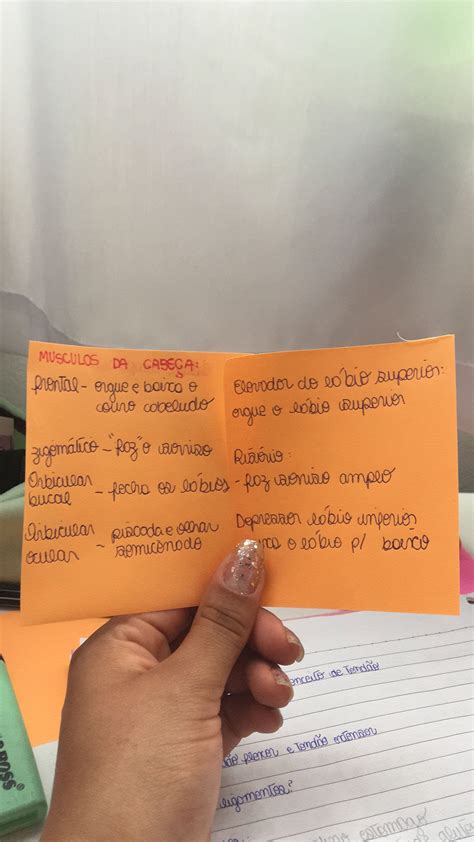 MUSCULOS DA CABEÇA:
frontal - ergue e baixa o
couro cabeludo
zigomático - "faz" o sorriso
Orbicular
bucal - fecha os lábios
Orbicular
ocular - piscada e olhar
semicerrado
Elevador do lábio superior:
ergue o lábio superior
Risório:
- faz sorriso amplo
Depressor lábio inferior
o lábio p/ baixo
conceito de tendão
flexor e tendão extensor
ligamentos?
BOSS